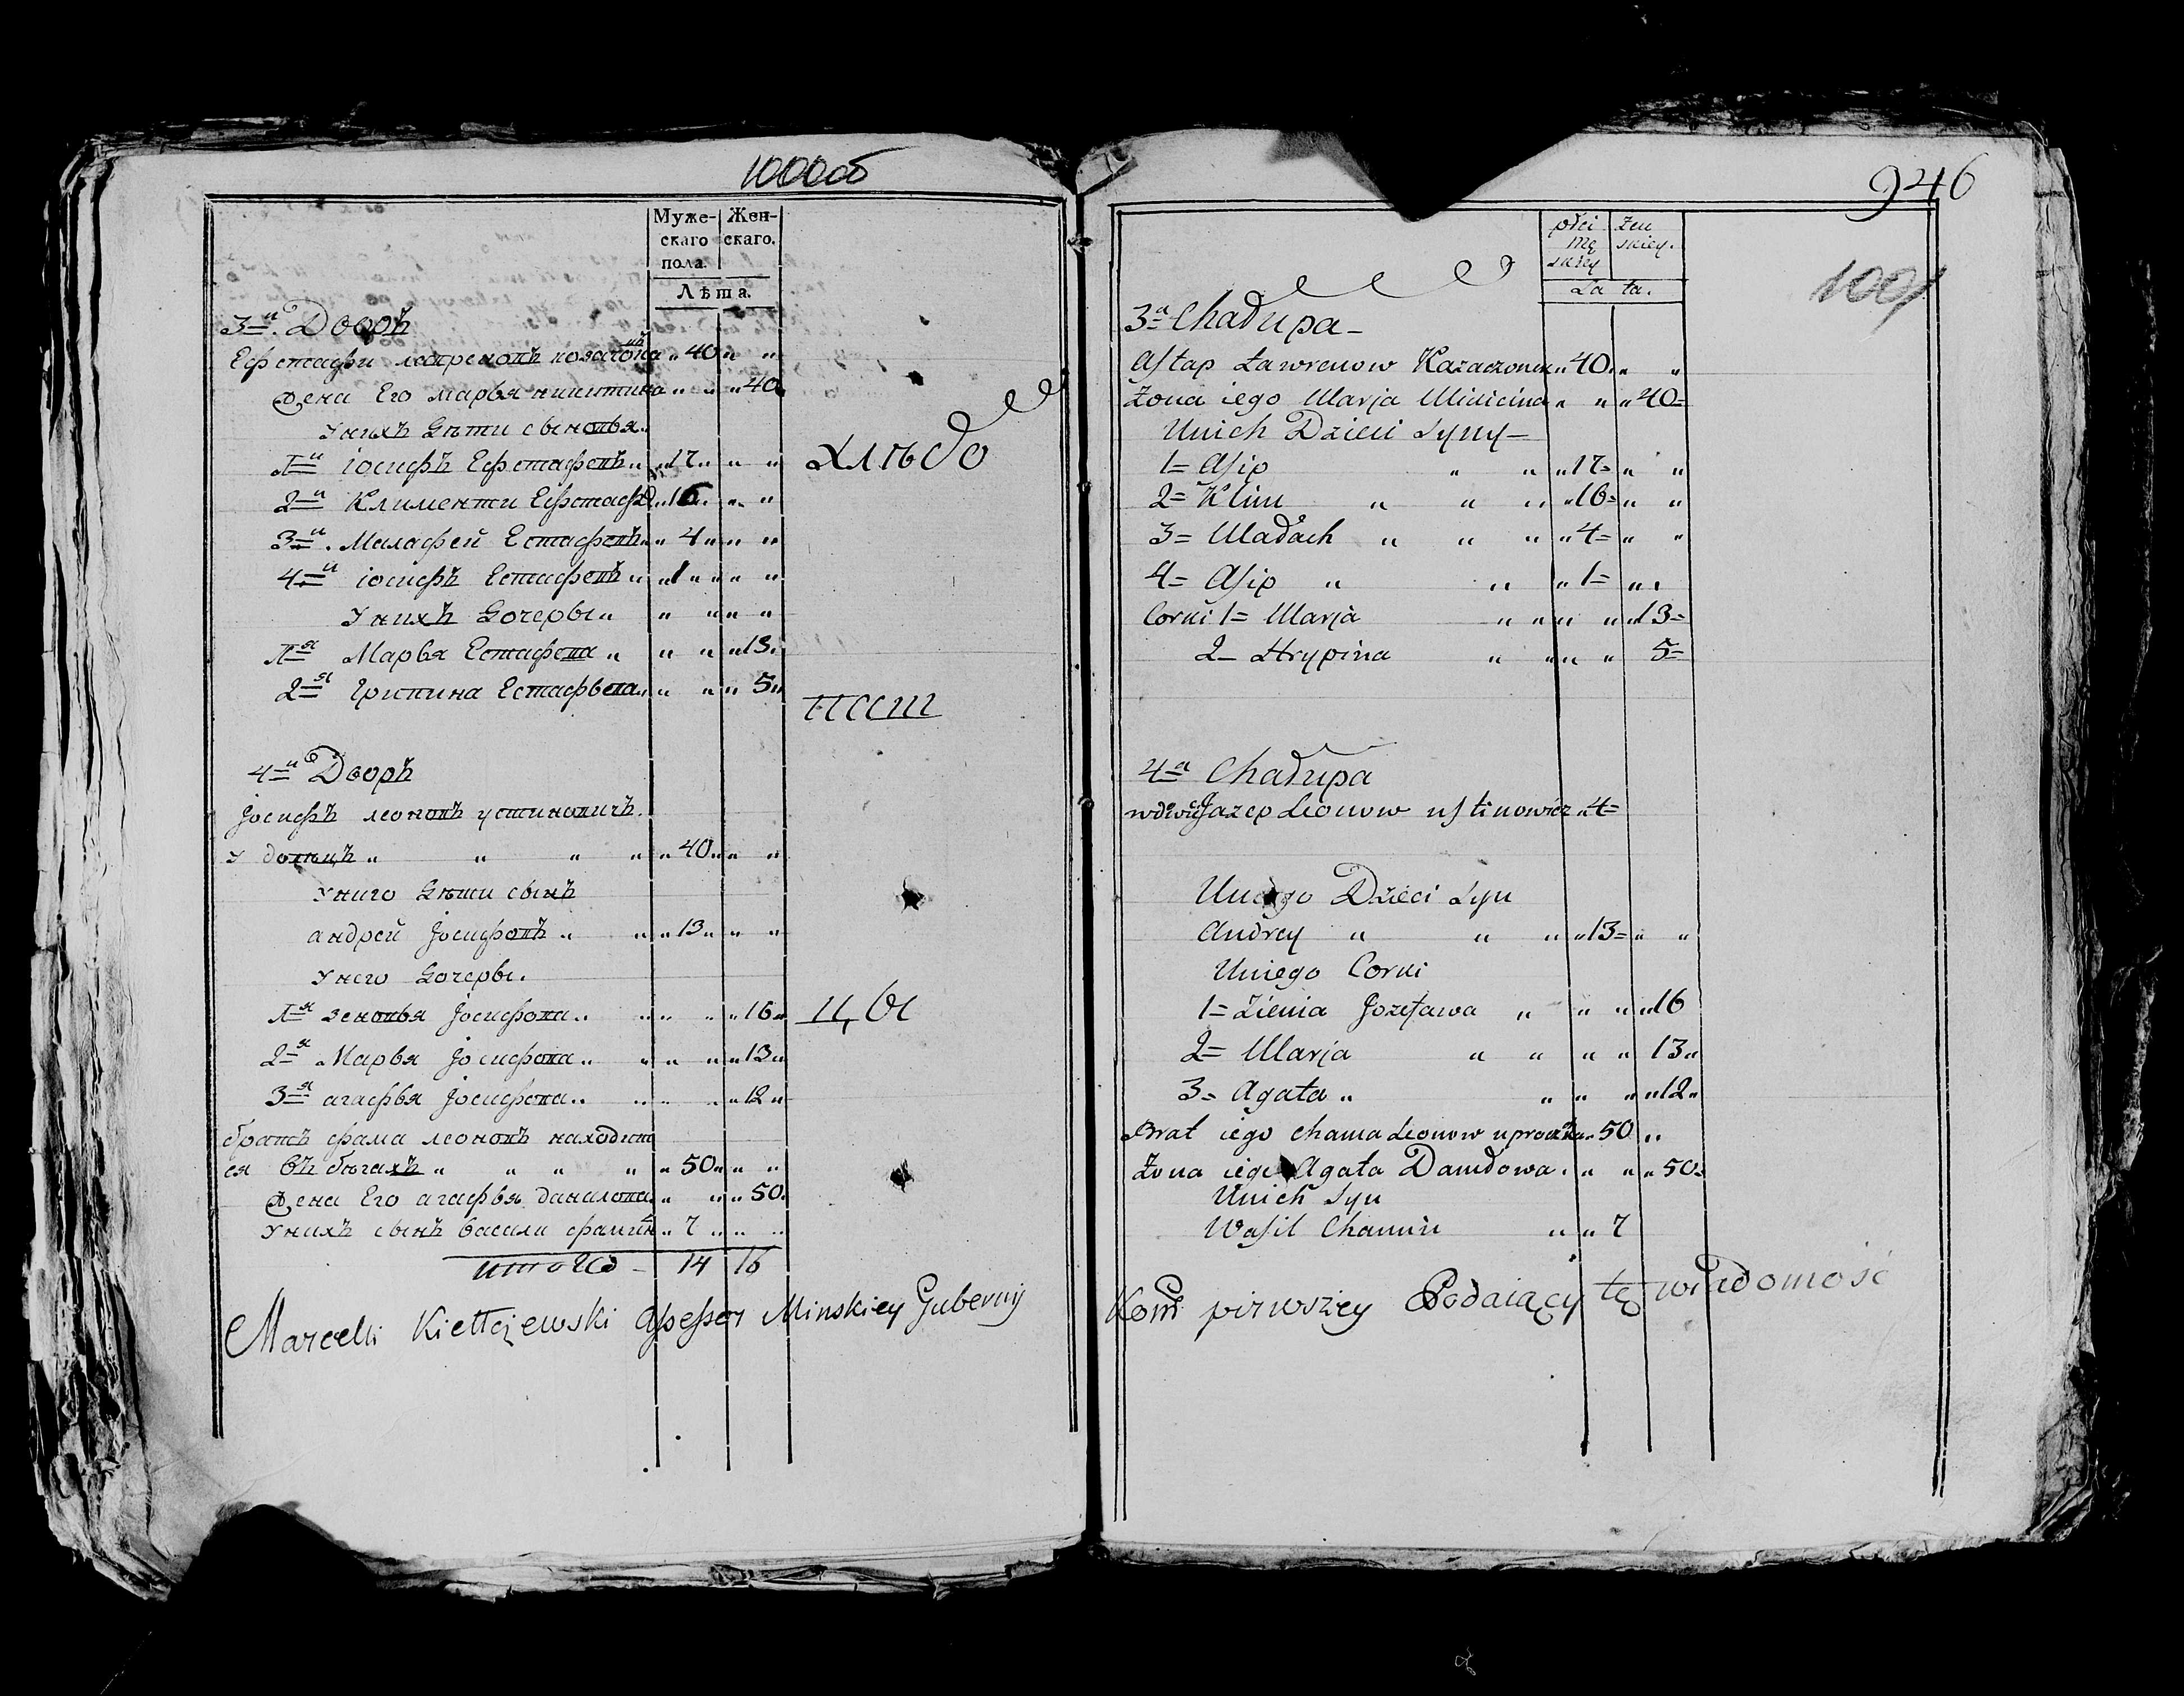 1000об
Муже-
скаго
пола.
Жен-
скаго.
Лѣта.
3й. Дворъ
Ефстафи лавреновъ козачонокъ „ 40 „ „
Жена Его марья никитина „ „ „ 40
Унихъ дѣти сыновья.
1й іосифъ Ефстафевъ „ „ 17 „ „ „
2й Климента Ефстафев „ 16 „ „ „
3й. Малафей Естафевъ „ „ 4 „ „ „
4й іосифъ Естафевъ „ „ 1 „ „ „
Унихъ дочеры „ „ „ „ „
1я Марья Естафева „ „ „ „ 13.
2я Грипина Естафьева „ „ „ „ 5 „
хлѣбо
паш
цы
4й Дворъ
Іосифъ леоновъ устиновичъ.
у довецъ „ „ „ „ „ 40 „ „ „
Униго дѣти сынъ
андрей Іосифовъ „ „ „ 13 „ „ „
Унего дочеры.
1я зеновья Іосифова „ „ „ „ 16 „
2я Марья Іосифова „ „ „ „ 13 „
3я агафья Іосифова „ „ „ „ 12 „
братъ фама леоновъ находит
ся въ бегахъ „ „ „ „ „ 50 „ „ „
Жена Его агафья данилова „ „ „ 50.
Унихъ сынъ васили фамин „ 7 „ „ „
итого – 14 16
Marcelli Kiełłczewski Assessor Minskiey Gubernij
946
1001
płci
mę
skiey
żeń
skiey.
La ta.
3a Chałupa –
Astap Ławrenow Kazaczonek „ 40 „ „
Żona iego Marja Mikicina „ „ „ 40=
Unich Dzieci Syny –
1= Asip „ „ „ 17= „ „
2= Klim „ „ „ „ 16= „ „
3= Małach „ „ „ „ 4= „ „
4= Asip „ „ „ 1= „ „
Corki 1= Marja „ „ „ „ 13=
2– Hrypina „ „ „ „ 5=
4a Chałupa
wdowiec Jazep Leonow Ustinowicz „ 4=
Uniego Dzieci Syn
Andrey „ „ „ „ 13= „ „
Uniego Corki
1= Zienia Jozefawa „ „ „ „ 16
2= Marja „ „ „ „ 13 „
3= Agata „ „ „ „ „ 12 „
Brat iego Chama Leonow „ 50 „
Żona iego Agata Daniłowa . „ „ „ 50=
Unich Syn
Wasil Chamin „ „ 7
Kom. pirwszey Podaiący tę wiadomość